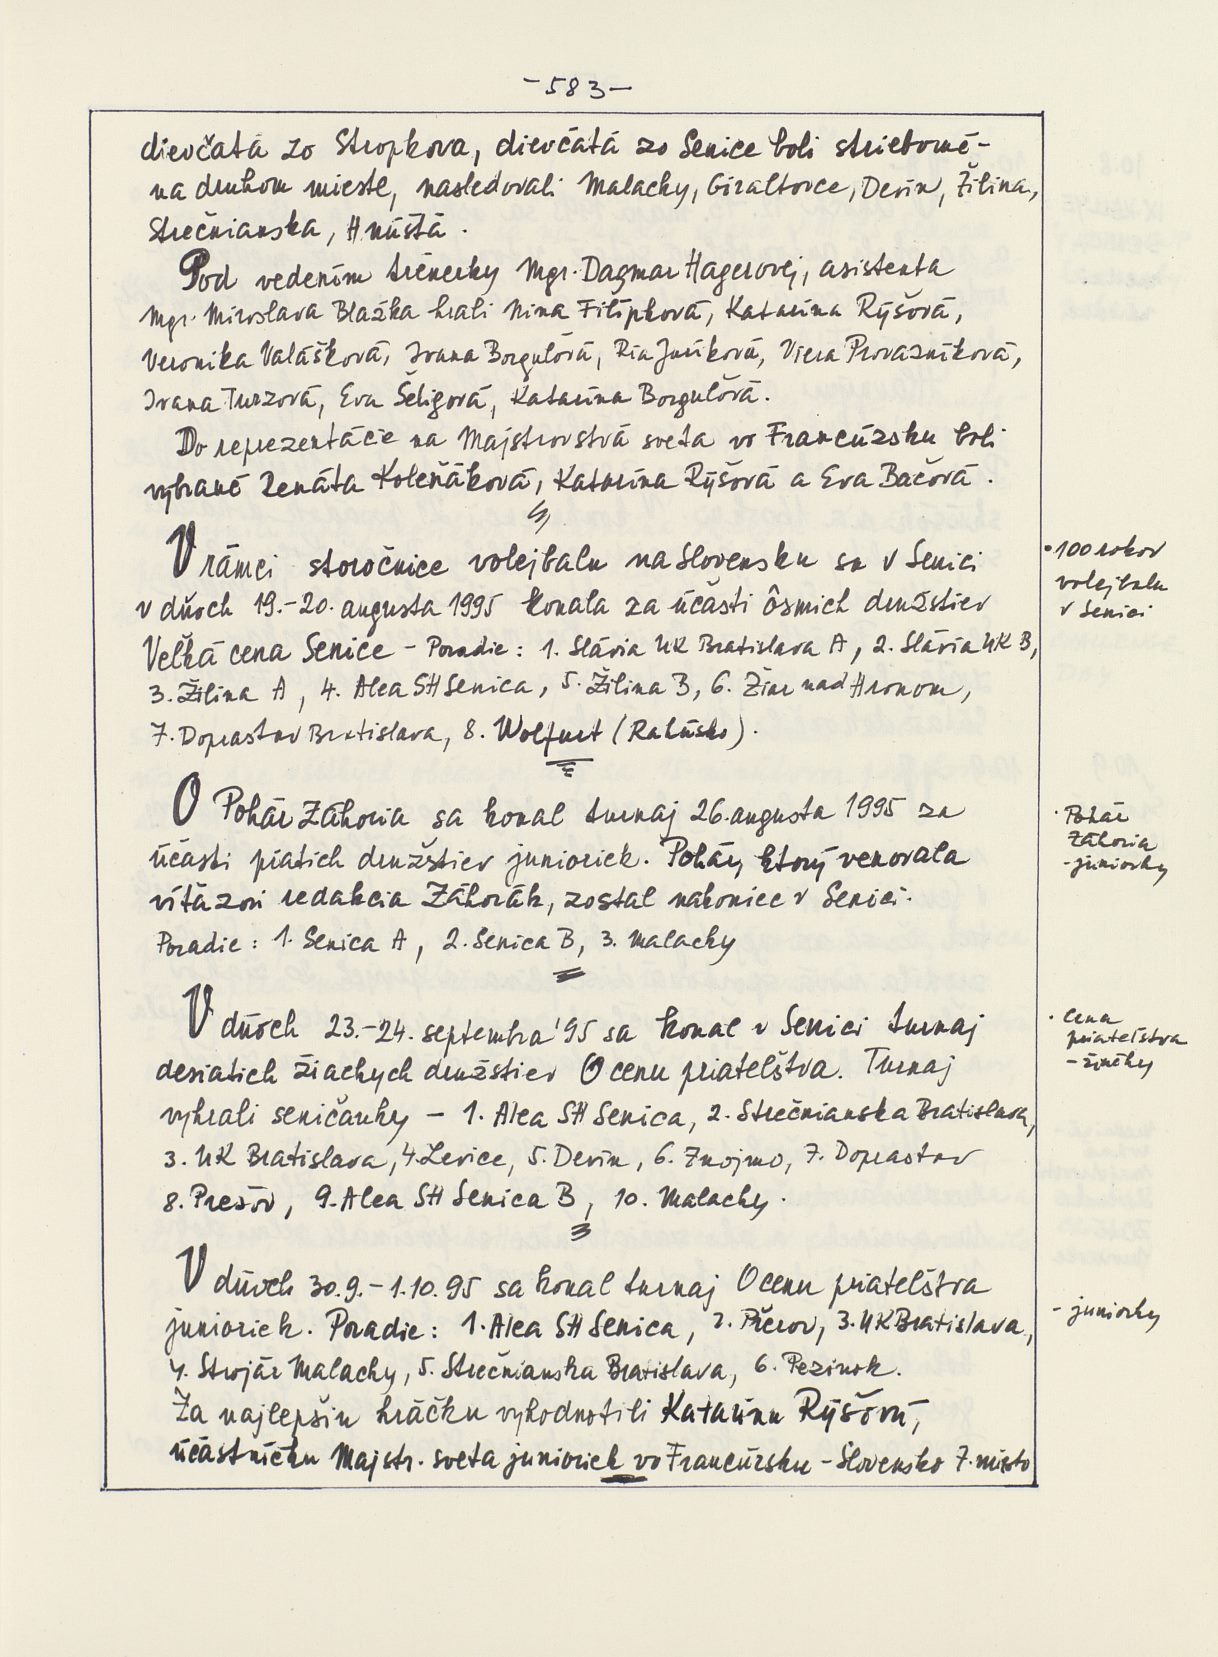 -583-
dievčatá zo Stropkova, dievčatá zo Senice boli strieborné-
na druhom mieste, nasledovali Malacky, Giraltovce, Devín, Žilina,
Strečnianska, Hnúšťa.
Pod vedením trénerky Mgr. Dagmar Hagerovej, asistenta
Mgr. Miroslava Blažka hrali Nina Filípková, Katarína Rýšová,
Veronika Valášková, Ivana Borgulová, Ria Juríková, Viera Provazníková,
Ivana Turzová, Eva Šeligová, Katarína Borgulová.
Do reprezentácie na Majstrovstvá sveta vo Francúzsku boli
vybrané Renáta Koleňáková, Katarína Rýšová a Eva Bačová.
V rámci storočnice volejbalu na Slovensku sa v Senici
v dňoch 19.-20. augusta 1995 konala za účasti ôsmich družstiev
Veľká cena Senice - Poradie: 1. Slávia UK Bratislava A, 2. Slávia UK B,
3. Žilina A, 4. Alea SH Senica, 5. Žilina B, 6. Žiar nad Hronom,
7. Doprastav Bratislava, 8. Wolfurt (Rakúsko).
• 100 rokov
volejbalu
v Senici
O Pohár Záhoria sa konal turnaj 26. augusta 1995 za
účasti piatich družstiev junioriek. Pohár, ktorý venovala
víťazovi redakcia Záhorák, zostal nakoniec v Senici.
Poradie: 1. Senica A, 2. Senica B, 3. Malacky
· Pohár
Záhoria
- juniorky
V dňoch 23.-24. septembra '95 sa konal v Senici turnaj
desiatich žiackych družstiev O cenu priateľstva. Turnaj
vyhrali seničanky - 1. Alea SH Senica, 2. Strečnianska Bratislava,
3. UK Bratislava, 4. Levice, 5. Devín, 6. Znojmo, 7. Doprastav
8. Prešov, 9. Alea SH Senica B, 10. Malacky.
· Cena
priateľstva
- žiačky
V dňoch 30.9.-1.10.95 sa konal turnaj O cenu priateľstva
junioriek. Poradie: 1. Alea SH Senica, 2. Přerov, 3. UK Bratislava,
4. Strojár Malacky, 5. Strečnianska Bratislava, 6. Pezinok.
Za najlepšiu hráčku vyhodnotili Katarínu Rýšovú,
účastníčku Majstr. sveta junioriek vo Francúzsku - Slovensko 7. miesto
- juniorky